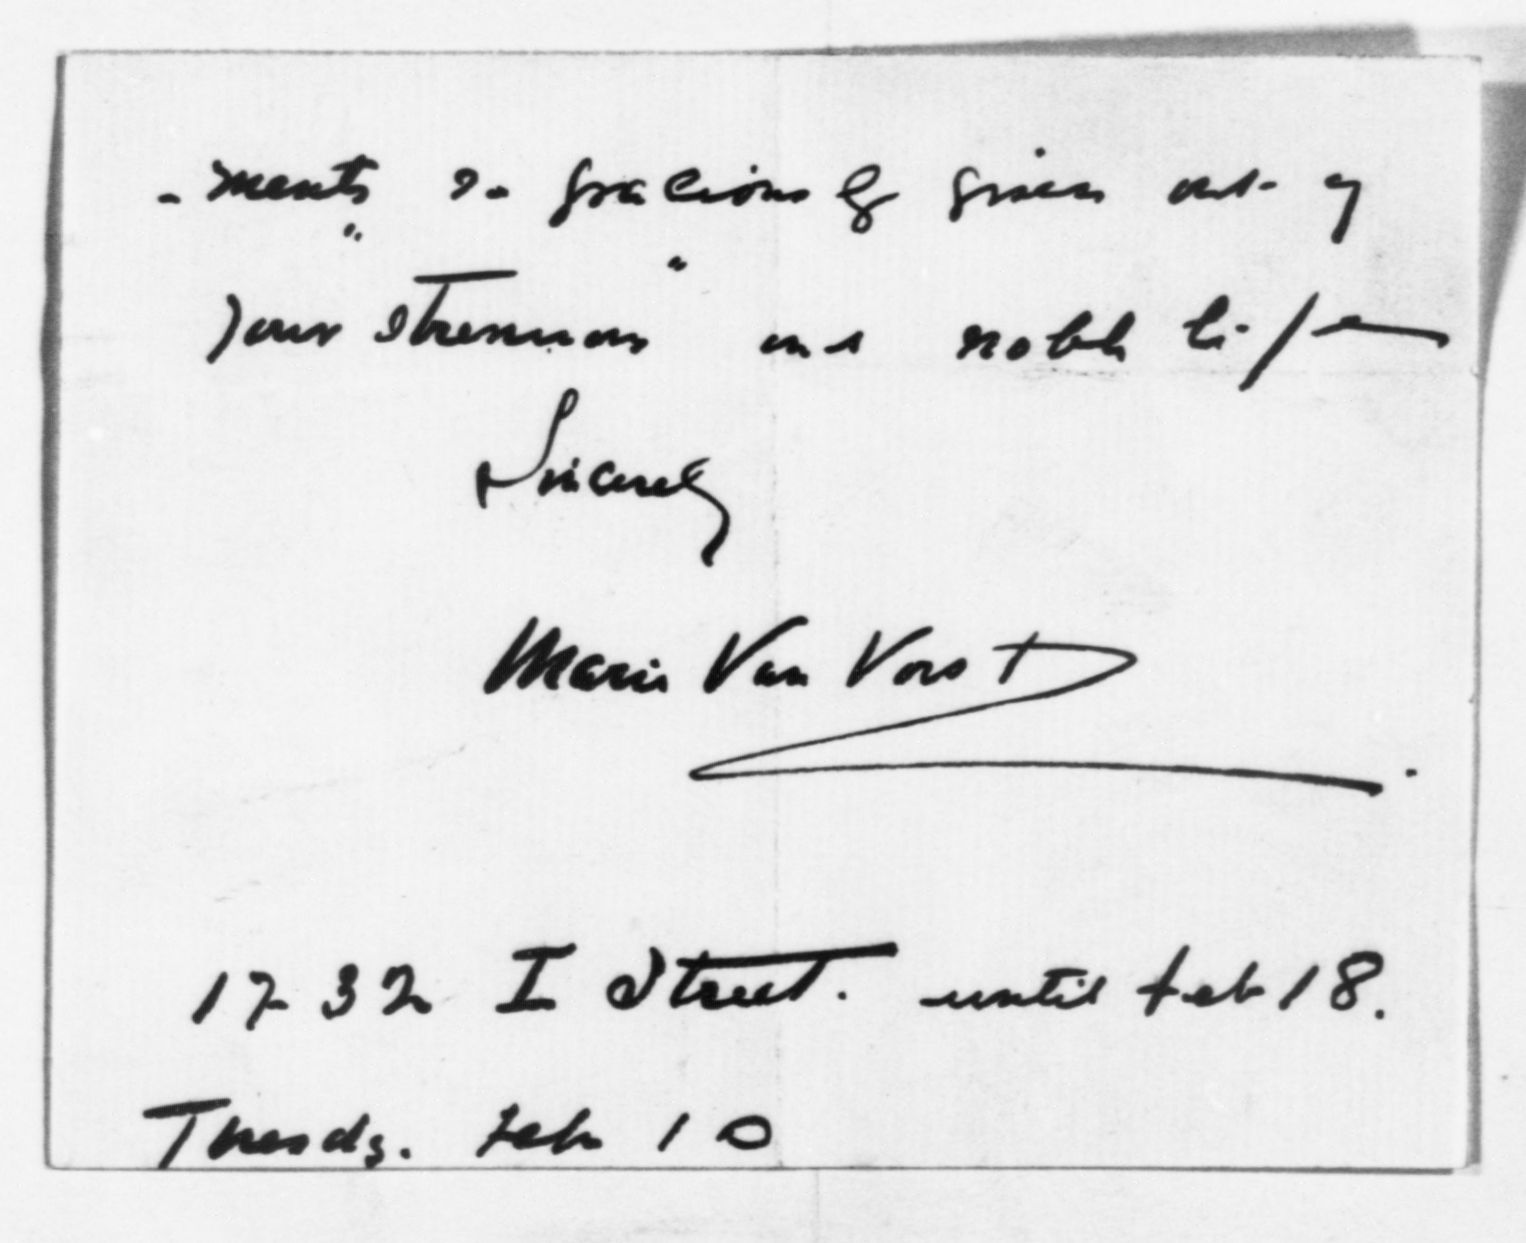 -ments so graciously given out of
your "strenuous" and noble life
Sincerely
Marie Van Vorst.
1732 I Street. until Feb 18.
Tuesdy. Feb 10